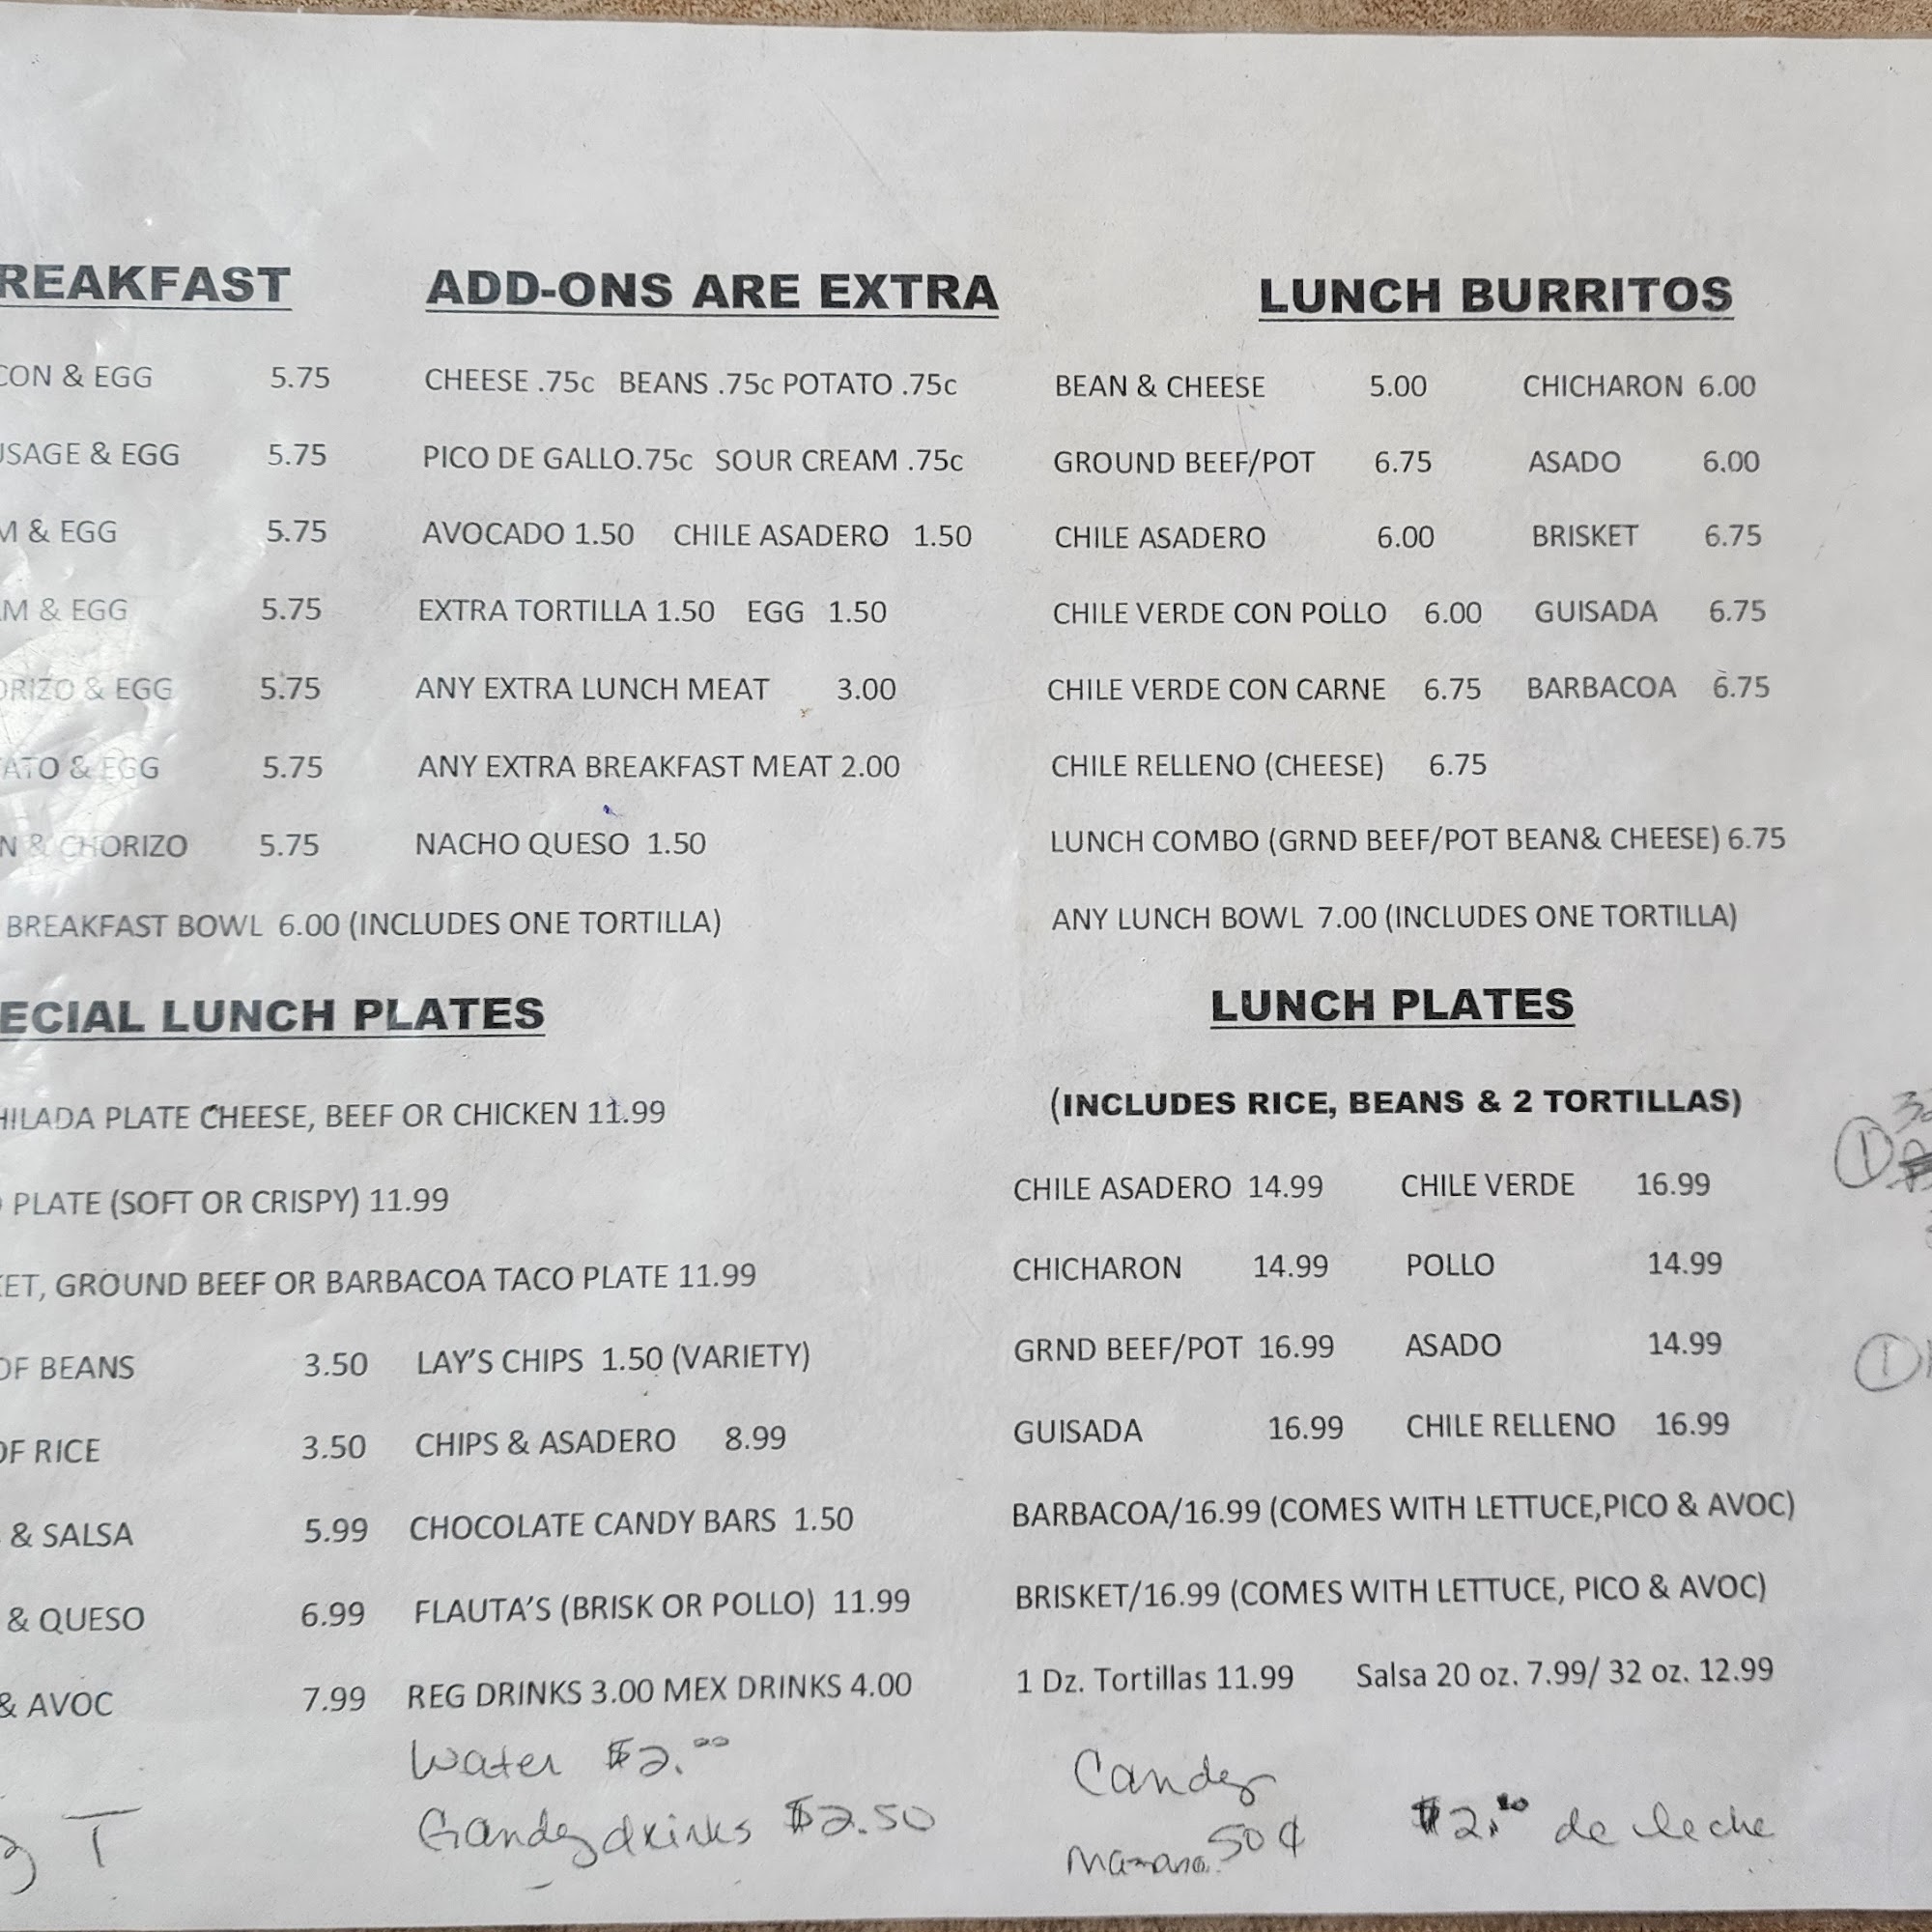 REAKFAST
CON & EGG 5.75
USAGE & EGG 5.75
M & EGG 5.75
AM & EGG 5.75
ORIZO & EGG 5.75
TATO & EGG 5.75
N & CHORIZO 5.75
BREAKFAST BOWL 6.00 (INCLUDES ONE TORTILLA)
ADD-ONS ARE EXTRA
CHEESE .75c BEANS .75c POTATO .75c
PICO DE GALLO.75c SOUR CREAM .75c
AVOCADO 1.50 CHILE ASADERO 1.50
EXTRA TORTILLA 1.50 EGG 1.50
ANY EXTRA LUNCH MEAT 3.00
ANY EXTRA BREAKFAST MEAT 2.00
NACHO QUESO 1.50
LUNCH BURRITOS
BEAN & CHEESE 5.00 CHICHARON 6.00
GROUND BEEF/POT 6.75 ASADO 6.00
CHILE ASADERO 6.00 BRISKET 6.75
CHILE VERDE CON POLLO 6.00 GUISADA 6.75
CHILE VERDE CON CARNE 6.75 BARBACOA 6.75
CHILE RELLENO (CHEESE) 6.75
LUNCH COMBO (GRND BEEF/POT BEAN& CHEESE) 6.75
ANY LUNCH BOWL 7.00 (INCLUDES ONE TORTILLA)
ECIAL LUNCH PLATES
HILADA PLATE CHEESE, BEEF OR CHICKEN 11.99
PLATE (SOFT OR CRISPY) 11.99
KET, GROUND BEEF OR BARBACOA TACO PLATE 11.99
OF BEANS 3.50 LAY'S CHIPS 1.50 (VARIETY)
OF RICE 3.50 CHIPS & ASADERO 8.99
& SALSA 5.99 CHOCOLATE CANDY BARS 1.50
& QUESO 6.99 FLAUTA'S (BRISK OR POLLO) 11.99
& AVOC 7.99 REG DRINKS 3.00 MEX DRINKS 4.00
Water $2.00
drinks $2.50
T
LUNCH PLATES
(INCLUDES RICE, BEANS & 2 TORTILLAS)
CHILE ASADERO 14.99 CHILE VERDE 16.99
CHICHARON 14.99 POLLO 14.99
GRND BEEF/POT 16.99 ASADO 14.99
GUISADA 16.99 CHILE RELLENO 16.99
BARBACOA/16.99 (COMES WITH LETTUCE,PICO & AVOC)
BRISKET/16.99 (COMES WITH LETTUCE, PICO & AVOC)
1 Dz. Tortillas 11.99 Salsa 20 oz. 7.99/ 32 oz. 12.99
Candy
50¢ $2. de leche
1
1